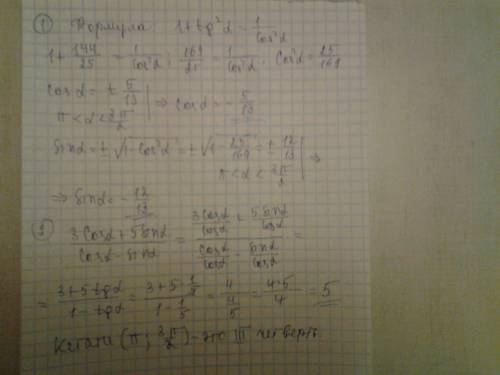 ① Формула: 1 + tg²α = 1/cos²α
1 + 144/25 = 1/cos²α; 169/25 = 1/cos²α; cos²α = 25/169
cos α = ± 5/13 | ⇒ cos α = - 5/13
π < α < 3π/2
sin α = ± √(1 - cos²α) = ± √(1 - 25/169) = ± 12/13 | ⇒
π < α < 3π/2
⇒ sin α = - 12/13
② (3cos α + 5sin α)/(cos α - sin α) = (3cos α/cos α + 5sin α/cos α)/(cos α/cos α - sin α/cos α) =
= (3 + 5tg α)/(1 - tg α) = (3 + 5·1/5)/(1 - 1/5) = 4/(4/5) = 4·5/4 = 5
Кстати (π; 3π/2) - это III четверть